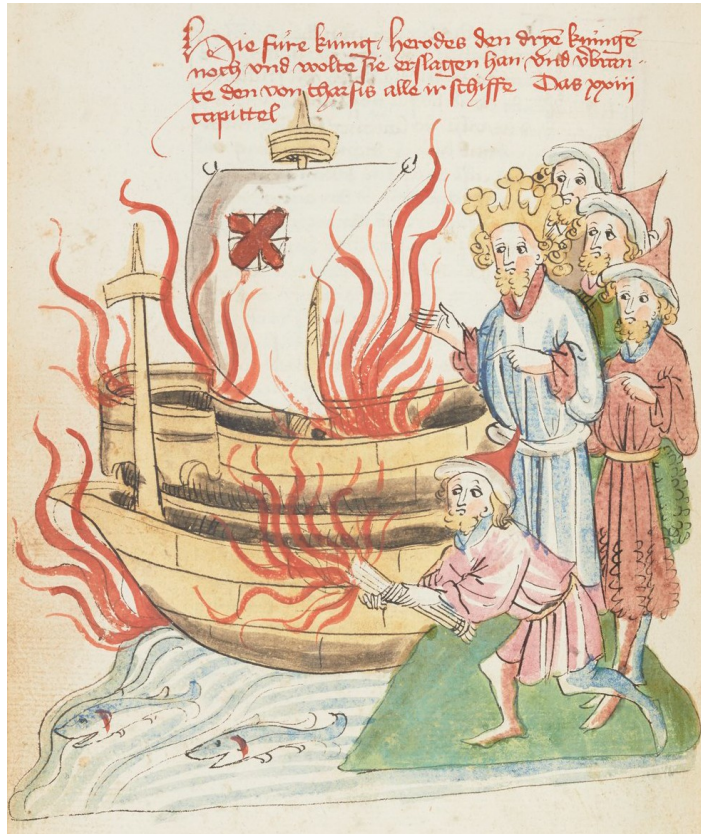 Hie füre küng herodes den drye künigē
noch vnd wolte sie erslagen han vnd vbran-
te den von tharsis alle ir schiffe Das xxiij
capittel